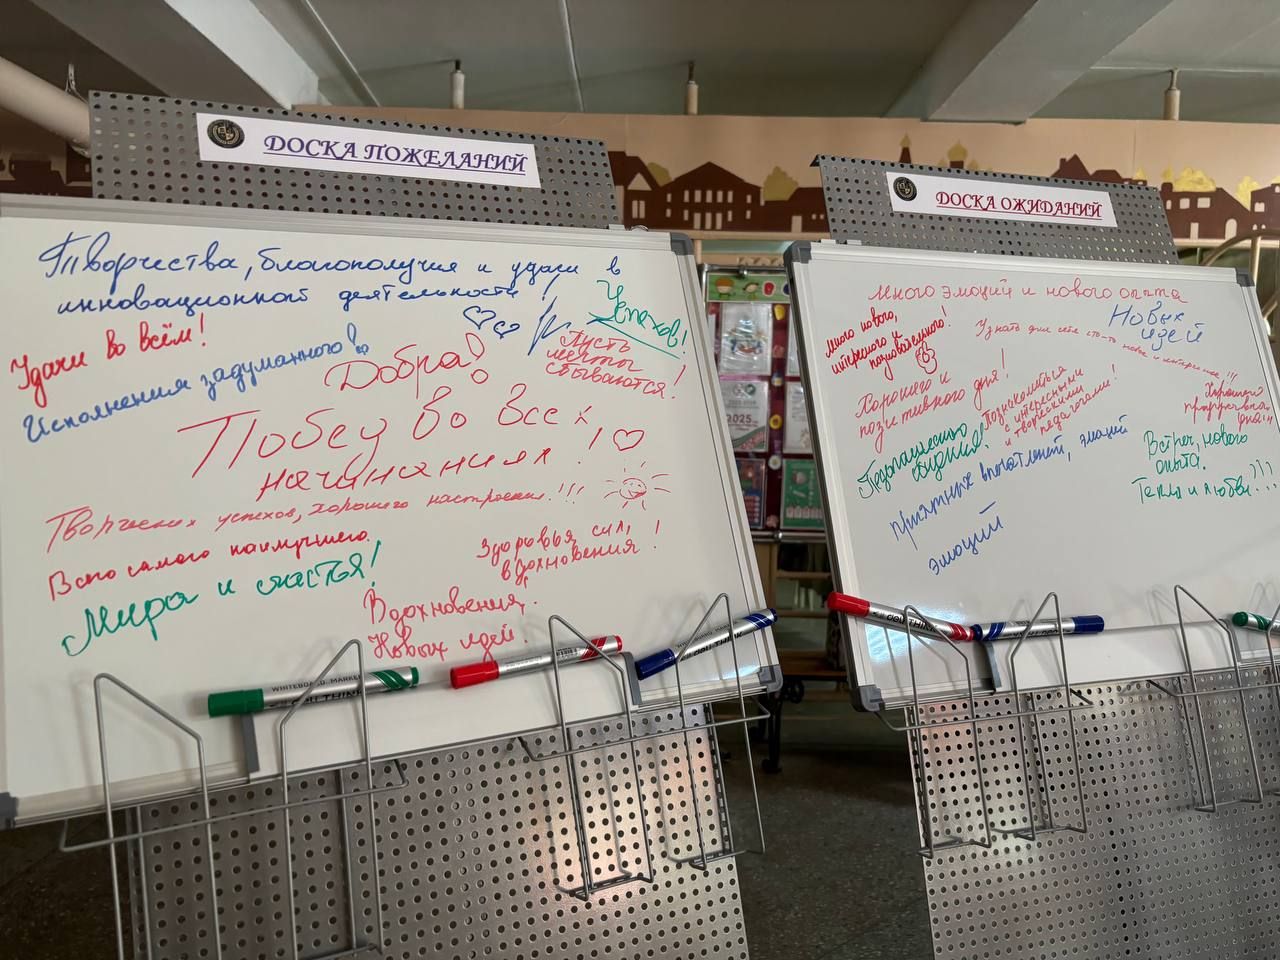 ДОСКА ПОЖЕЛАНИЙ
Творчества, благополучия и удачи в
инновационной деятельности!
Успехов!
Удачи во всём!
Исполнения задуманного!
Добра!
Пусть
мечты
сбываются!
Побед во всех
начинаниях!
Творческих успехов, хорошего настроения!!!
Всего самого наилучшего.
Здоровья, сил,
вдохновения!
Мира и счастья!
Вдохновения,
Новых идей.
WHITEBOARD MARKER
deli THINK
deli THINK
WHITEBOARD MARKER
deli THINK
ДОСКА ОЖИДАНИЙ
много эмоций и нового опыта
много нового,
интересного и
познавательного!
Узнать для себя что-то новое и интересное!!!
Новых
идей
Хорошего и
позитивного дня!
Познакомиться
с интересными
и творческими
педагогами!
Хорошего
дня!!!
Педагогического
общения!
приятных впечатлений, эмоций
Встреч, нового
опыта.
Тепла и любви!!!
эмоций
deli THINK
2025